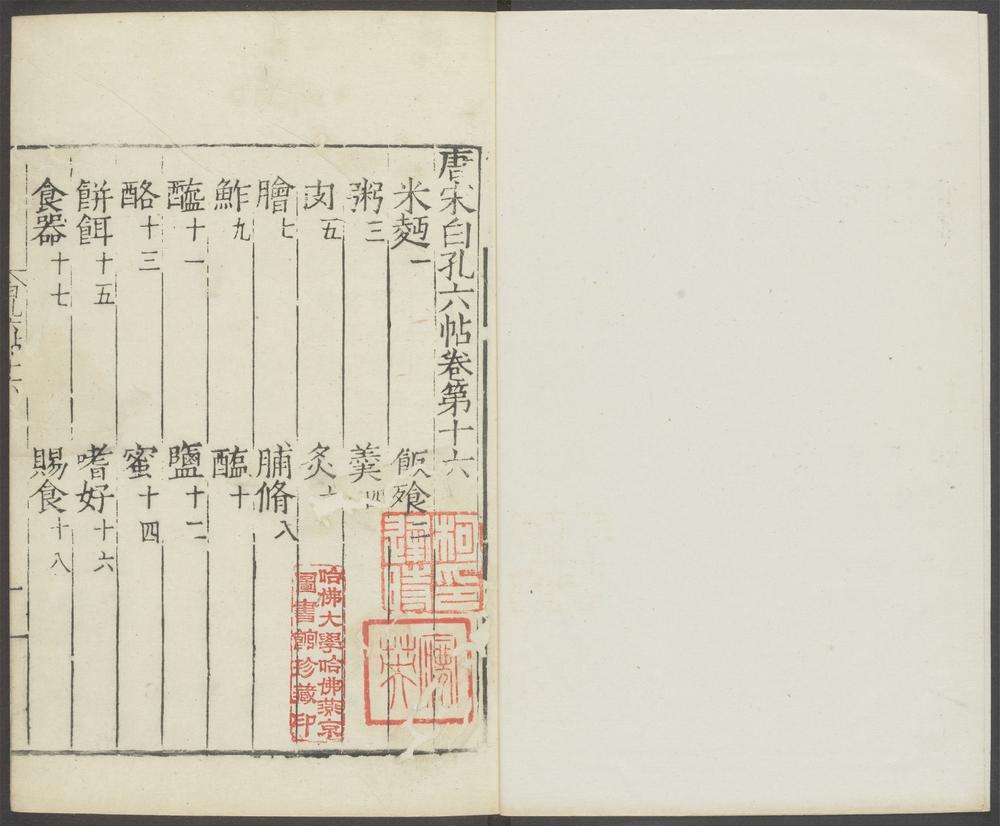 唐宋白孔六帖卷第十六
米麪一 飯飱二
粥三 羮四
肉五 炙
膾七 脯脩八
鮓九 醢十
醯十一 鹽十二
酪十三 蜜十四
餠餌十五 嗜好十六
食器十七 賜食十八
哈佛大學哈佛燕京
圖書館珍藏印